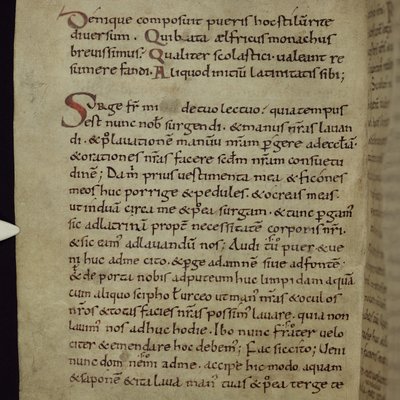 Denique composuit pueris hoc stilu rite
diuersum . Qui bata ælfricus monachus
breuissimus ; Qualiter scolastici ualeant re
sumere fandi . Aliquod initiū latinitatis sibi ;
Surge fr̄ mi de tuo lectuo : quia tempus
est nunc nob surgendi . & manus nr̄as lauan
di . & p lauationē manuū nr̄am ꝑgere ad ecclā
& orationes nr̄as facere scdm nr̄am consuetu
dinē ; Dā prius uestimenta mea & ficones
meos huc porrige & pedules . & ocreas meas .
ut induā circa me & p̄ea surgam . & tunc ꝑgam
sic ad latrinā propt necessitatē corporis nr̄i .
& sic eam ad lauandū nos ; Audi tu puer & ue
ni huc adme cito . & ꝑge ad amnē siue ad fontē
& de porta nobis ad puteum huc limpidam aquā
cum aliquo scipho ł urceo ut manꝰ nr̄as & oculos
nr̄os & totas facies nr̄as possimꝰ lauare . quia non
lauimꝰ nos adhuc hodie . Ibo nunc frater uelo
citer & emendare hoc debemꝰ ; Fac sic cito ; Ueni
nunc dom adme . accipe hic modo aquam
& saponē & ita laua manꝰ tuas & p̄ea terge te